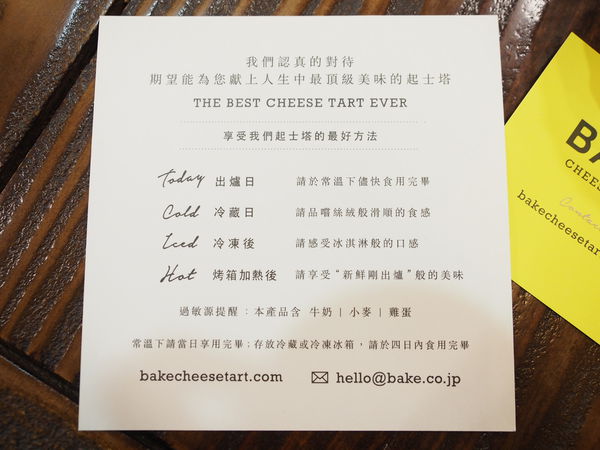 我們認真的對待
期望能為您獻上人生中最頂級美味的起士塔
THE BEST CHEESE TART EVER
享受我們起士塔的最好方法
Today 出爐日 請於常溫下儘快食用完畢
Cold 冷藏日 請品嚐絲絨般滑順的食感
Iced 冷凍後 請感受冰淇淋般的口感
Hot 烤箱加熱後 請享受“新鮮剛出爐”般的美味
過敏源提醒：本產品含 牛奶 | 小麥 | 雞蛋
常溫下請當日享用完畢；存放冷藏或冷凍冰箱，請於四日內食用完畢
bakecheesetart.com hello@bake.co.jp
BA
CHEES
bakecheesetart